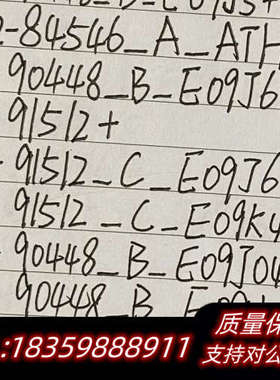 -84546_A_ATH
90448_B_E09J6
91512+
91512_C_E09J6
91512_C_E09K4
90448_B_E09J04
90448_B
质量保
:18359888911
支持对公